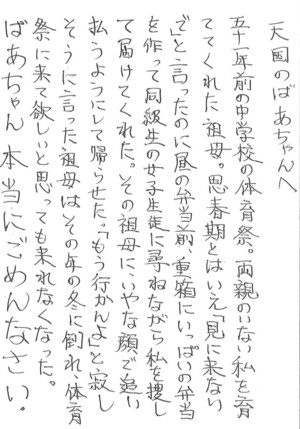 天国のばあちゃんへ
五十一年前の中学校の体育祭。両親のいない私を育
ててくれた祖母。思春期とはいえ「見に来ない
で」と言ったのに昼の弁当前、重箱にいっぱいの弁当
を作って同級生の女子生徒に尋ねながら私を捜し
て届けてくれた。その祖母にいやな顔で追い
払うようにして帰らせた。「もう行かんよ」と寂し
そうに言った祖母はその年の冬に倒れ、体育
祭に来て欲しいと思っても来れなくなった。
ばあちゃん本当にごめんなさい。